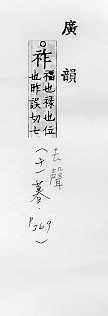 廣韻
祚福也祿也位
也昨誤切七
去聲
(十一暮.
P369)